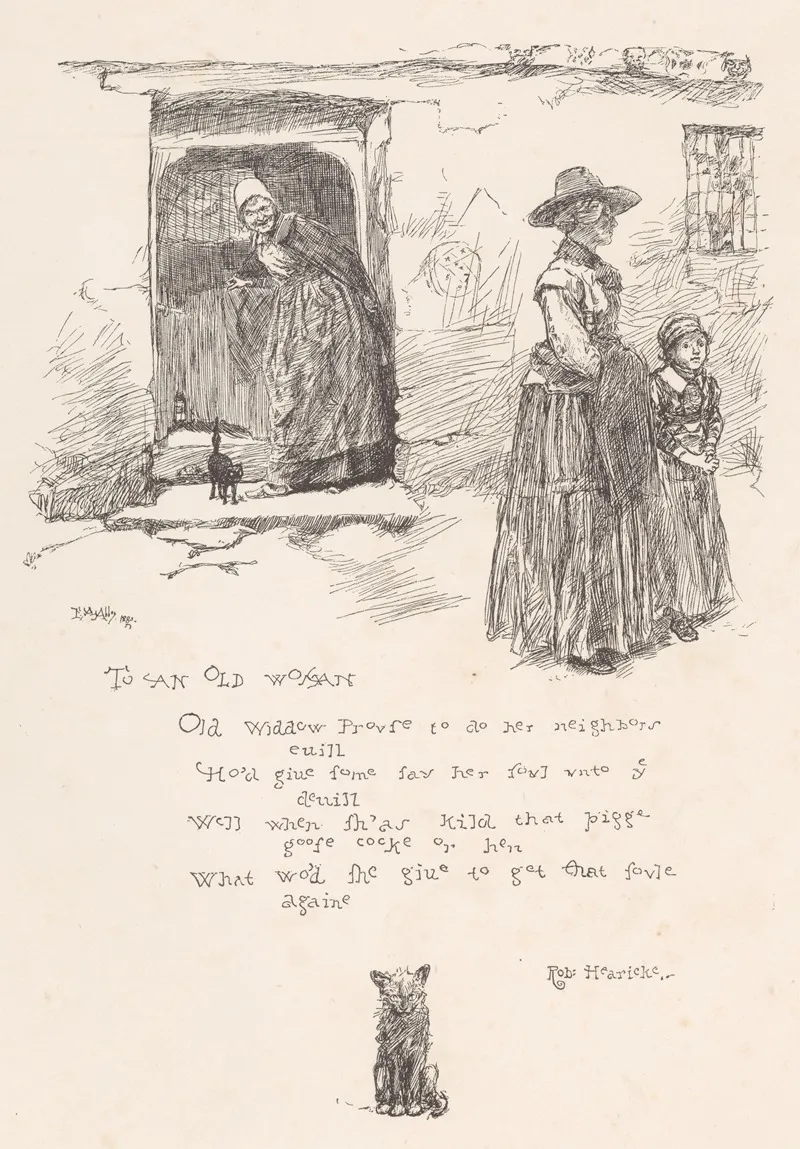 To an Old Woman
Old Widdow Provſe to do her neighbors
euill
Wo'd giue ſome ſay her ſoul vnto yͤ
deuill
Well when ſh'as kild that pigge
gooſe cocke or hen
What wo'd ſhe giue to get that ſoule
againe
Rob: Hearicke.